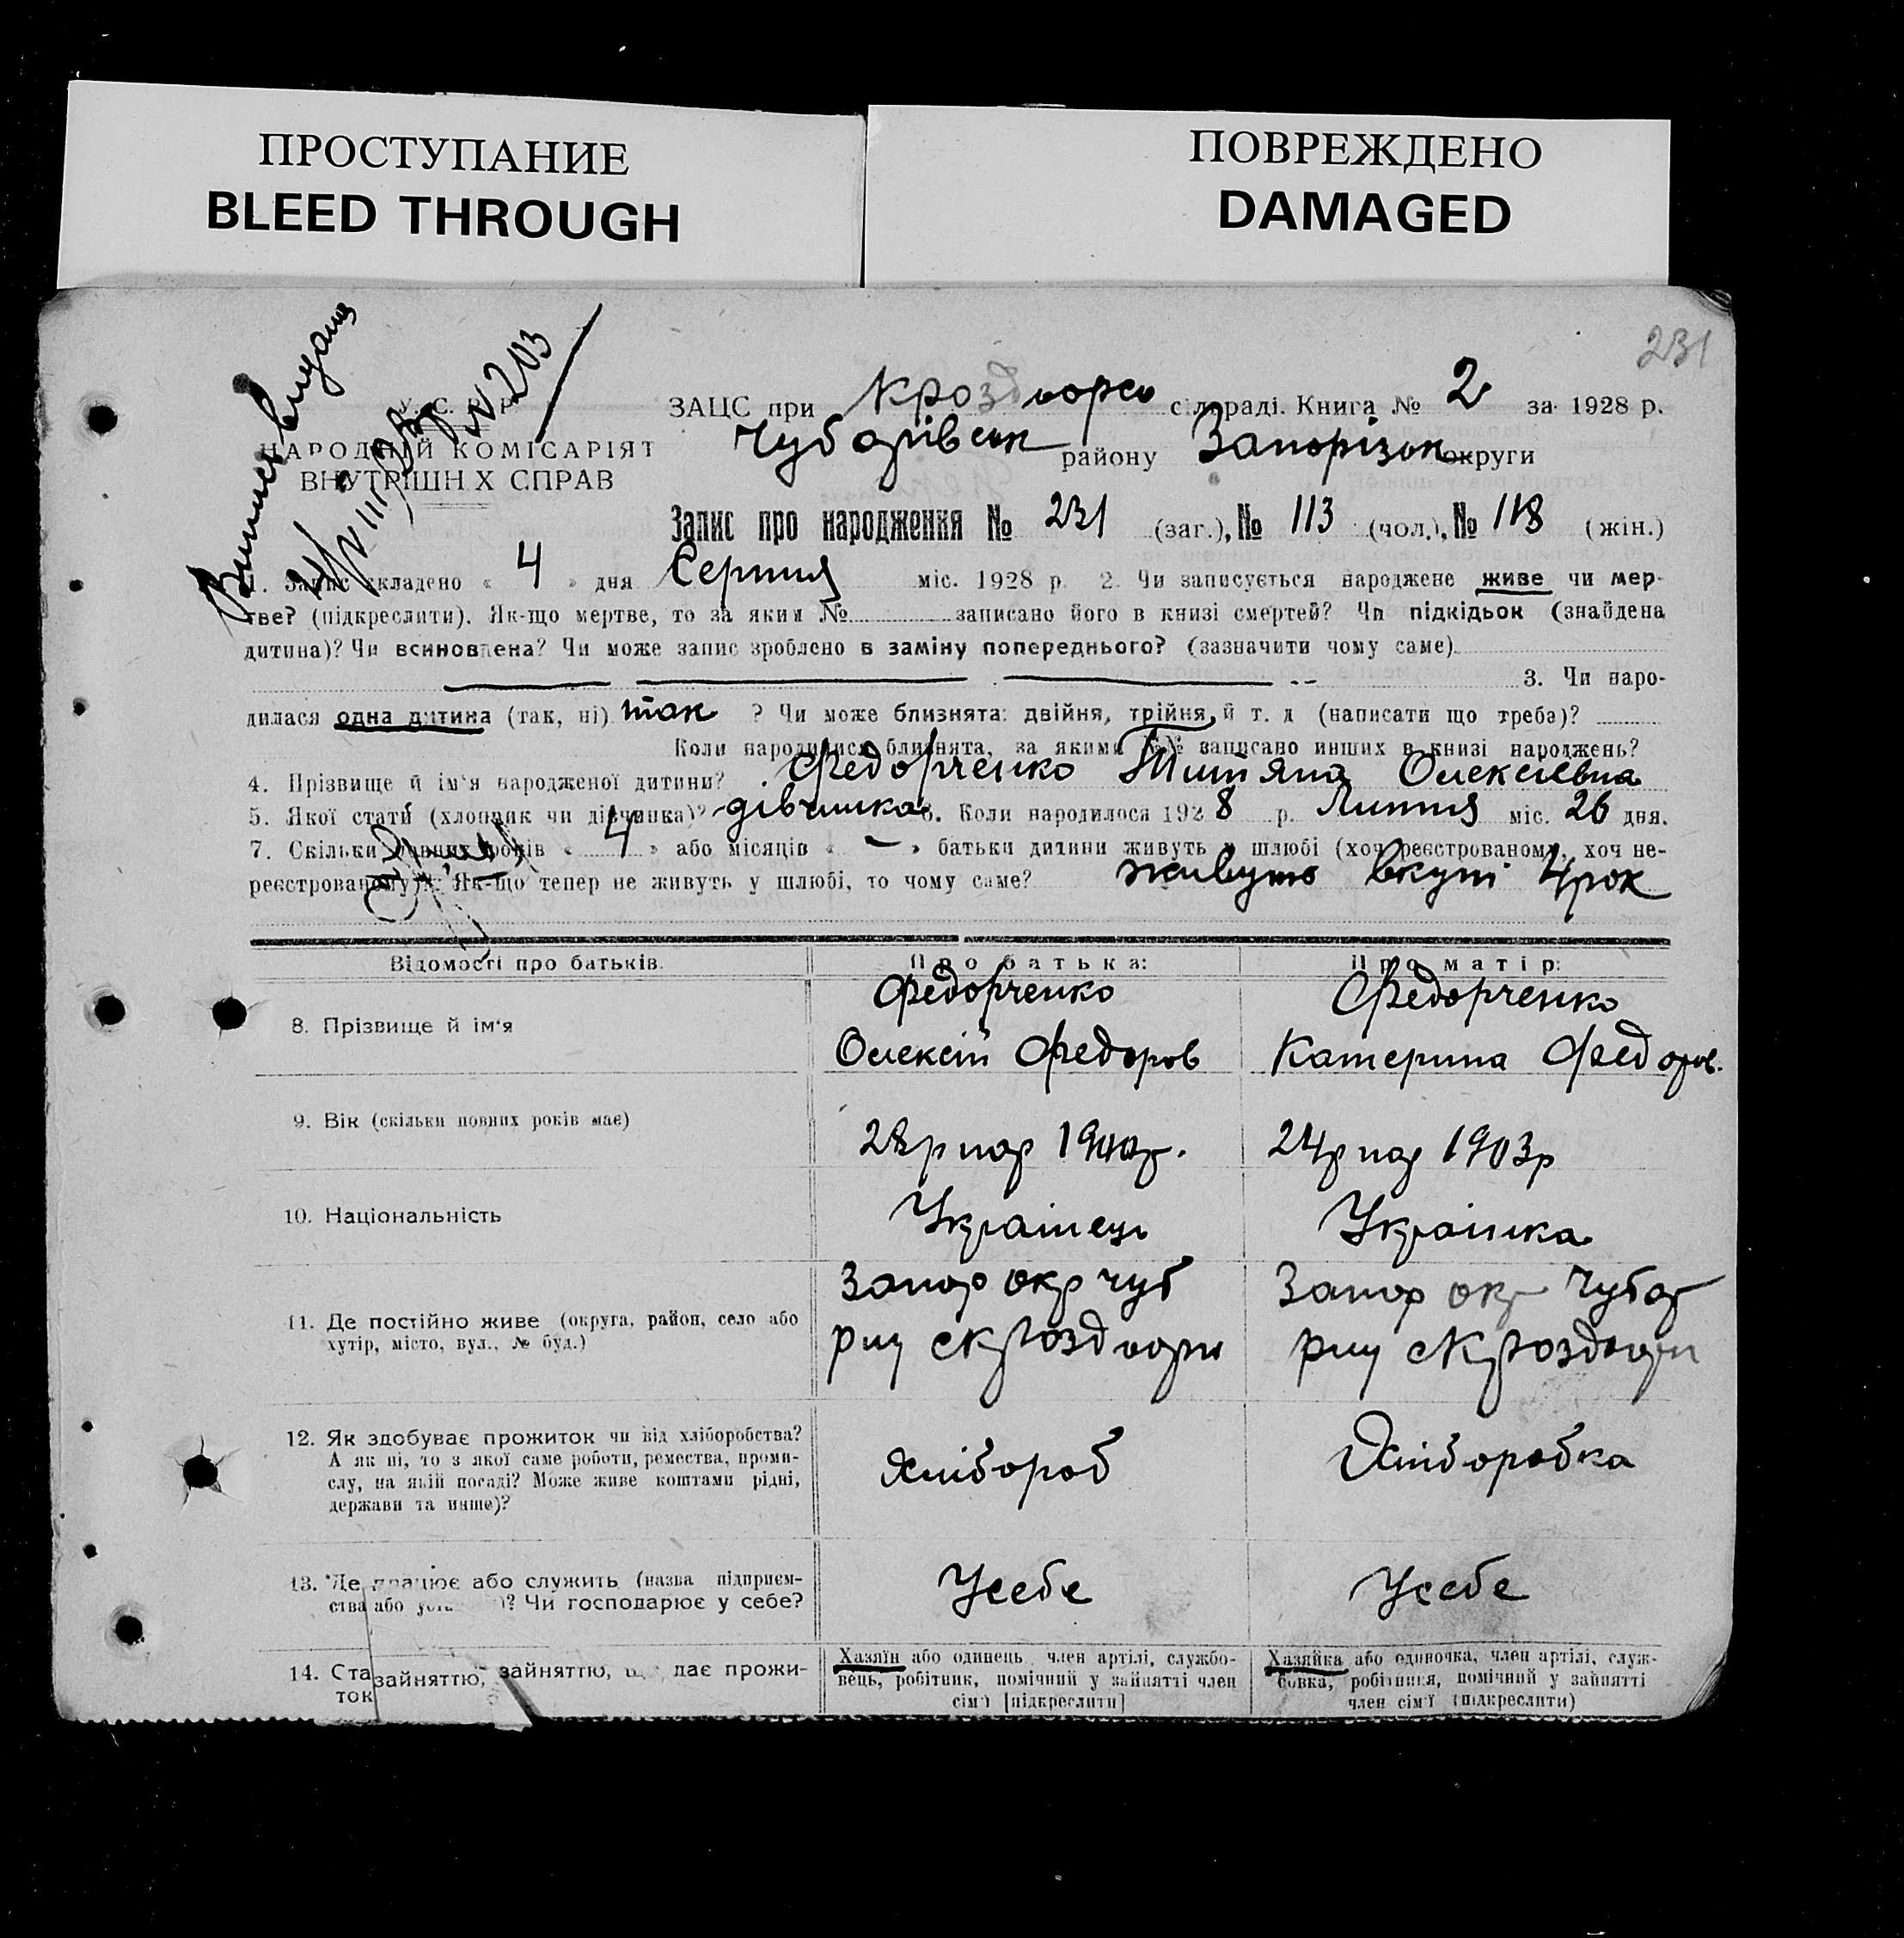 ПРОСТУПАНИЕ
BLEED THROUGH
ПОВРЕЖДЕНО
DAMAGED
231
№ 203
У. С. Р. Р.
НАРОДНІЙ КОМІСАРІЯТ
ВНУТРІШН Х СПРАВ
ЗАЦС при Кроздворсь сільраді. Книга № 2 за 1928 р.
Чубарівськ району Запорізьк округи
Запис про народження № 231 (заг.), № 113 (чол.), № 118 (жін.)
1. Запис складено « 4 » дня Серпня міс. 1928 р. 2. Чи записується народжене живе чи мер-
тве? (підкреслити). Як-що мертве, то за яким № записано його в книзі смертей? Чи підкідьок (знайдена
дитина)? Чи всиновлена? Чи може запис зроблено в заміну попереднього? (зазначити чому саме)
3. Чи наро-
дилася одна дитина (так, ні) так ? Чи може близнята: двійня, трійня, й т. д (написати що треба)?
Коли народилися близнята, за якими №№ записано инших в книзі народжень?
4. Прізвище й ім'я народженої дитини? Федорченко Титяна Олексіевна
5. Якої статі (хлопчик чи дівчинка)? дівчинка 6. Коли народилося 1928 р. Липня міс. 26 дня.
7. Скільки повних років « 4 » або місяців « – » батьки дитини живуть у шлюбі (хоч реєстрованому, хоч не-
реєстрованому)? Як-що тепер не живуть у шлюбі, то чому саме? живуть вкупі 4 рок
Відомості про батьків.
Про батька:
Про матір:
8. Прізвище й ім'я
Федорченко
Олексій Федоров
Федорченко
Катерина Федоров.
9. Вік (скільки повних років має)
28р нар 1900р.
24р нар 1903р
10. Національність
Українець
Українка
11. Де постійно живе (округа, район, село або
хутір, місто, вул., № буд.)
Запор окр Чуб
рну с Кроздворы
Запор окр Чубар
рну с Кроздвори
12. Як здобуває прожиток чи від хліборобства?
А як ні, то з якої саме роботи, ремества, проми-
слу, на якій посаді? Може живе коштами рідні,
держави та инше)?
Хлібороб
Хліборобка
13. Де працює або служить (назва підприєм-
ства або уста )? Чи господарює у себе?
Усебе
Усебе
14. Ста зайняттю, зайняттю, що дає прожи-
ток
Хазяїн або одинець, член артілі, службо-
вець, робітник, помічний у зайнятті член
сім'ї [підкреслити]
Хазяйка або одиночка, член артілі, служ-
бовка, робітниця, помічний у зайнятті
член сім'ї (підкреслити)